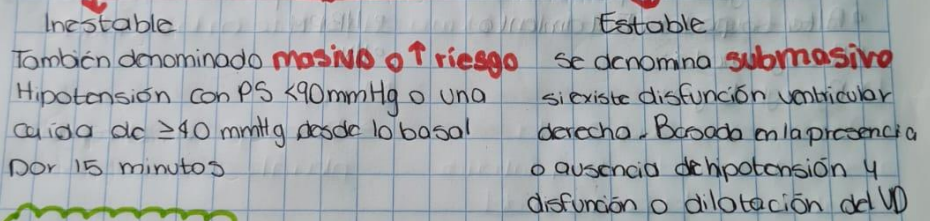 Inestable
También denominado masivo o ↑ riesgo
Hipotensión con PS <90mmHg o una
caida de ≥40 mmHg desde lo basal
por 15 minutos
Estable
se denomina submasivo
si existe disfunción ventricular
derecha. Basada en la presencia
o ausencia de hipotensión y
disfunción o dilatación del VD